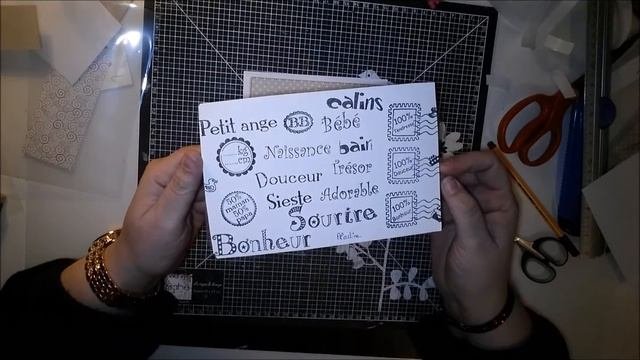 calins
Petit ange BB Bébé
kg
cm
Naissance bain
100%
tendresse
Douceur Trésor
100%
Douceur
50%
maman
50%
papa
Sieste Adorable
100%
Bonheur
Sourire
Bonheur